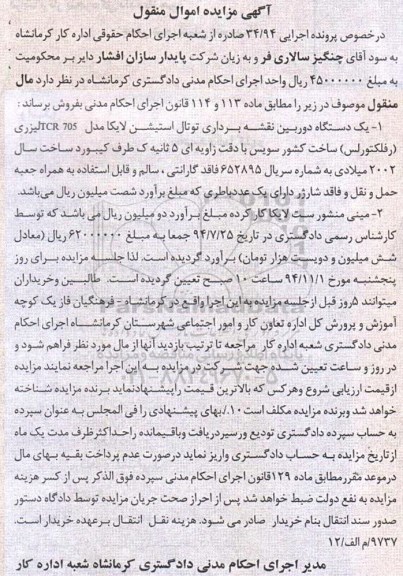 آگهی مزایده اموال منقول
درخصوص پرونده اجرایی ۳۴/۹۴ صادره از شعبه اجرای احکام حقوقی اداره کار کرمانشاه
به سود آقای چنگیز سالاری فر و به زیان شرکت پایدار سازان افشار دایر بر محکومیت
به مبلغ ۴۵۰۰۰۰۰۰ ریال واحد اجرای احکام مدنی دادگستری کرمانشاه در نظر دارد مال
منقول موصوف در زیر را مطابق ماده ۱۱۳ و ۱۱۴ قانون اجرای احکام مدنی بفروش برساند:
۱- یک دستگاه دوربین نقشه برداری توتال استیشن لایکا مدل TCR 705 لیزری
(رفلکتورلس) ساخت کشور سویس با دقت زاویه ای ۵ ثانیه ک طرف کیبورد ساخت سال
۲۰۰۲ میلادی به شماره سریال ۶۵۲۸۹۵ فاقد گارانتی ، سالم و قابل استفاده به همراه جعبه
حمل و نقل و فاقد شارژر دارای یک عددباطری که مبلغ برآورد شصت میلیون ریال می‌باشد.
۲- مینی منشور ست لایکا کار کرده مبلغ برآورد دو میلیون ریال می باشد که توسط
کارشناس رسمی دادگستری در تاریخ ۹۴/۷/۲۵ جمعا به مبلغ ۶۲۰۰۰۰۰۰ ریال (معادل
شش میلیون و دویست هزار تومان) برآورد گردیده است. لذا جلسه مزایده برای روز
پنجشنبه مورخ ۹۴/۱۱/۱ ساعت ۱۰ صبح تعیین گردیده است. طالبین وخریداران
میتوانند ۵روز قبل ازجلسه مزایده به این اجرا واقع در کرمانشاه - فرهنگیان فاز یک کوچه
آموزش و پرورش کل اداره تعاون کار و امور اجتماعی شهرستان کرمانشاه اجرای احکام
مدنی دادگستری شعبه اداره کار مراجعه تا ترتیب بازدید آنها از مال مورد نظر فراهم شود و
در روز و ساعت تعیین شده جهت شرکت در مزایده به این اجرا مراجعه نمایند مزایده
ازقیمت ارزیابی شروع وهرکس که بالاترین قیمت راپیشنهادنماید برنده مزایده شناخته
خواهد شد وبرنده مزایده مکلف است ۱۰٪بهای پیشنهادی را فی المجلس به عنوان سپرده
به حساب سپرده دادگستری تودیع ورسیردریافت وباقیمانده راحداکثرظرف مدت یک ماه
ازتاریخ مزایده به حساب دادگستری واریز نماید درصورت عدم پرداخت بقیه بهای مال
درموعد مقررمطابق ماده ۱۲۹قانون اجرای احکام مدنی سپرده فوق الذکر پس از کسر هزینه
مزایده به نفع دولت ضبط خواهد شد پس از احراز صحت جریان مزایده توسط دادگاه دستور
صدور سند انتقال بنام خریدار صادر می شود. هزینه نقل انتقال برعهده خریدار است.
۹۷۳۷/م الف/۱۲
مدیر اجرای احکام مدنی دادگستری کرمانشاه شعبه اداره کار